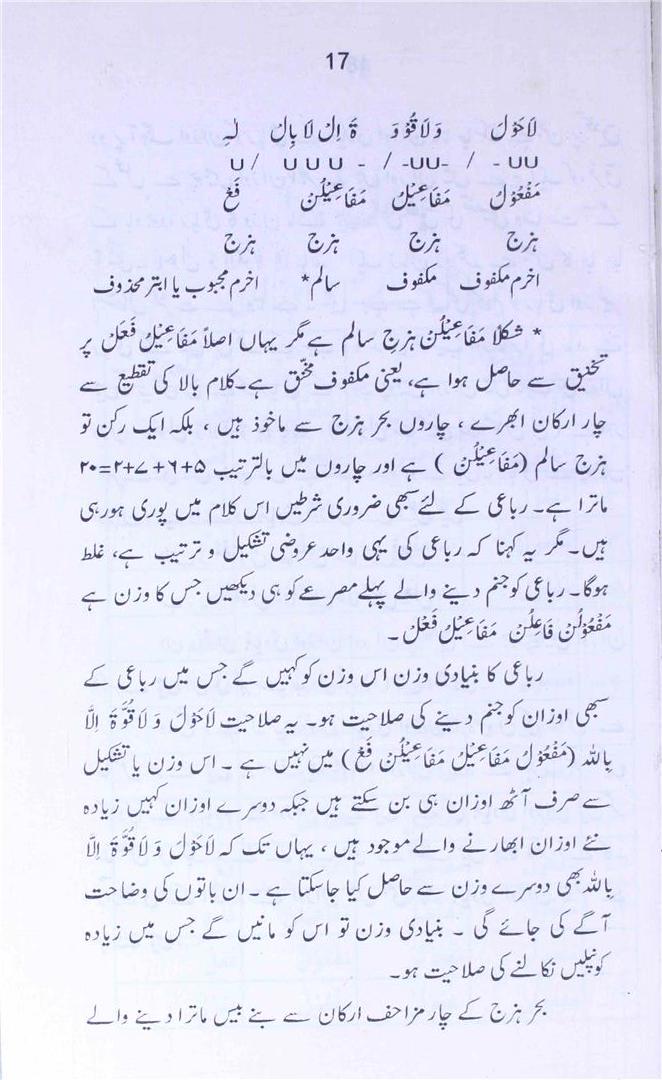 17
لَاحَوْلَ وَلَا قُوْوَ ةَ اِلْ لَا بِالْ لٰہِ
- UU / -UU- / - U U U / U
مَفْعُوْلُ مَفَاعِیْلُ مَفَاعِیْلُنْ فَعْ
ہزج ہزج ہزج ہزج
اخرم مکفوف مکفوف سالم* اخرم مجبوب یا ابتر محذوف
* شکلاً مَفَاعِیْلُنْ ہزج سالم ہے مگر یہاں اصلاً مَفَاعِیْلُ فَعَلْ پر
تخنیق سے حاصل ہوا ہے، یعنی مکفوف مخنق ہے۔ کلام بالا کی تقطیع سے
چار ارکان ابھرے ، چاروں بحر ہزج سے ماخوذ ہیں ، بلکہ ایک رکن تو
ہزج سالم (مَفَاعِیْلُنْ ) ہے اور چاروں میں بالترتیب ۵+۶+۷+۲=۲۰
ماترا ہے۔ رباعی کے لئے سبھی ضروری شرطیں اس کلام میں پوری ہورہی
ہیں۔ مگر یہ کہنا کہ رباعی کی یہی واحد عروضی تشکیل و ترتیب ہے، غلط
ہوگا۔ رباعی کو جنم دینے والے پہلے مصرعے کو ہی دیکھیں جس کا وزن ہے
مَفْعُوْلُنْ فَاعِلُنْ مَفَاعِیْلُ فَعَلْ ۔
رباعی کا بنیادی وزن اس وزن کو کہیں گے جس میں رباعی کے
سبھی اوزان کو جنم دینے کی صلاحیت ہو۔ یہ صلاحیت لَاحَوْلَ وَلَا قُوَّةَ اِلَّا
بِاللہ (مَفْعُوْلُ مَفَاعِیْلُ مَفَاعِیْلُنْ فَعْ) میں نہیں ہے ۔ اس وزن یا تشکیل
سے صرف آٹھ اوزان ہی بن سکتے ہیں جبکہ دوسرے اوزان کہیں زیادہ
نئے اوزان ابھارنے والے موجود ہیں ، یہاں تک کہ لَاحَوْلَ وَلَا قُوَّةَ اِلَّا
بِاللہ بھی دوسرے وزن سے حاصل کیا جاسکتا ہے ۔ ان باتوں کی وضاحت
آگے کی جائے گی ۔ بنیادی وزن تو اس کو مانیں گے جس میں زیادہ
کونپلیں نکالنے کی صلاحیت ہو۔
بحر ہزج کے چار مزاحف ارکان سے بنے بیس ماترا دینے والے